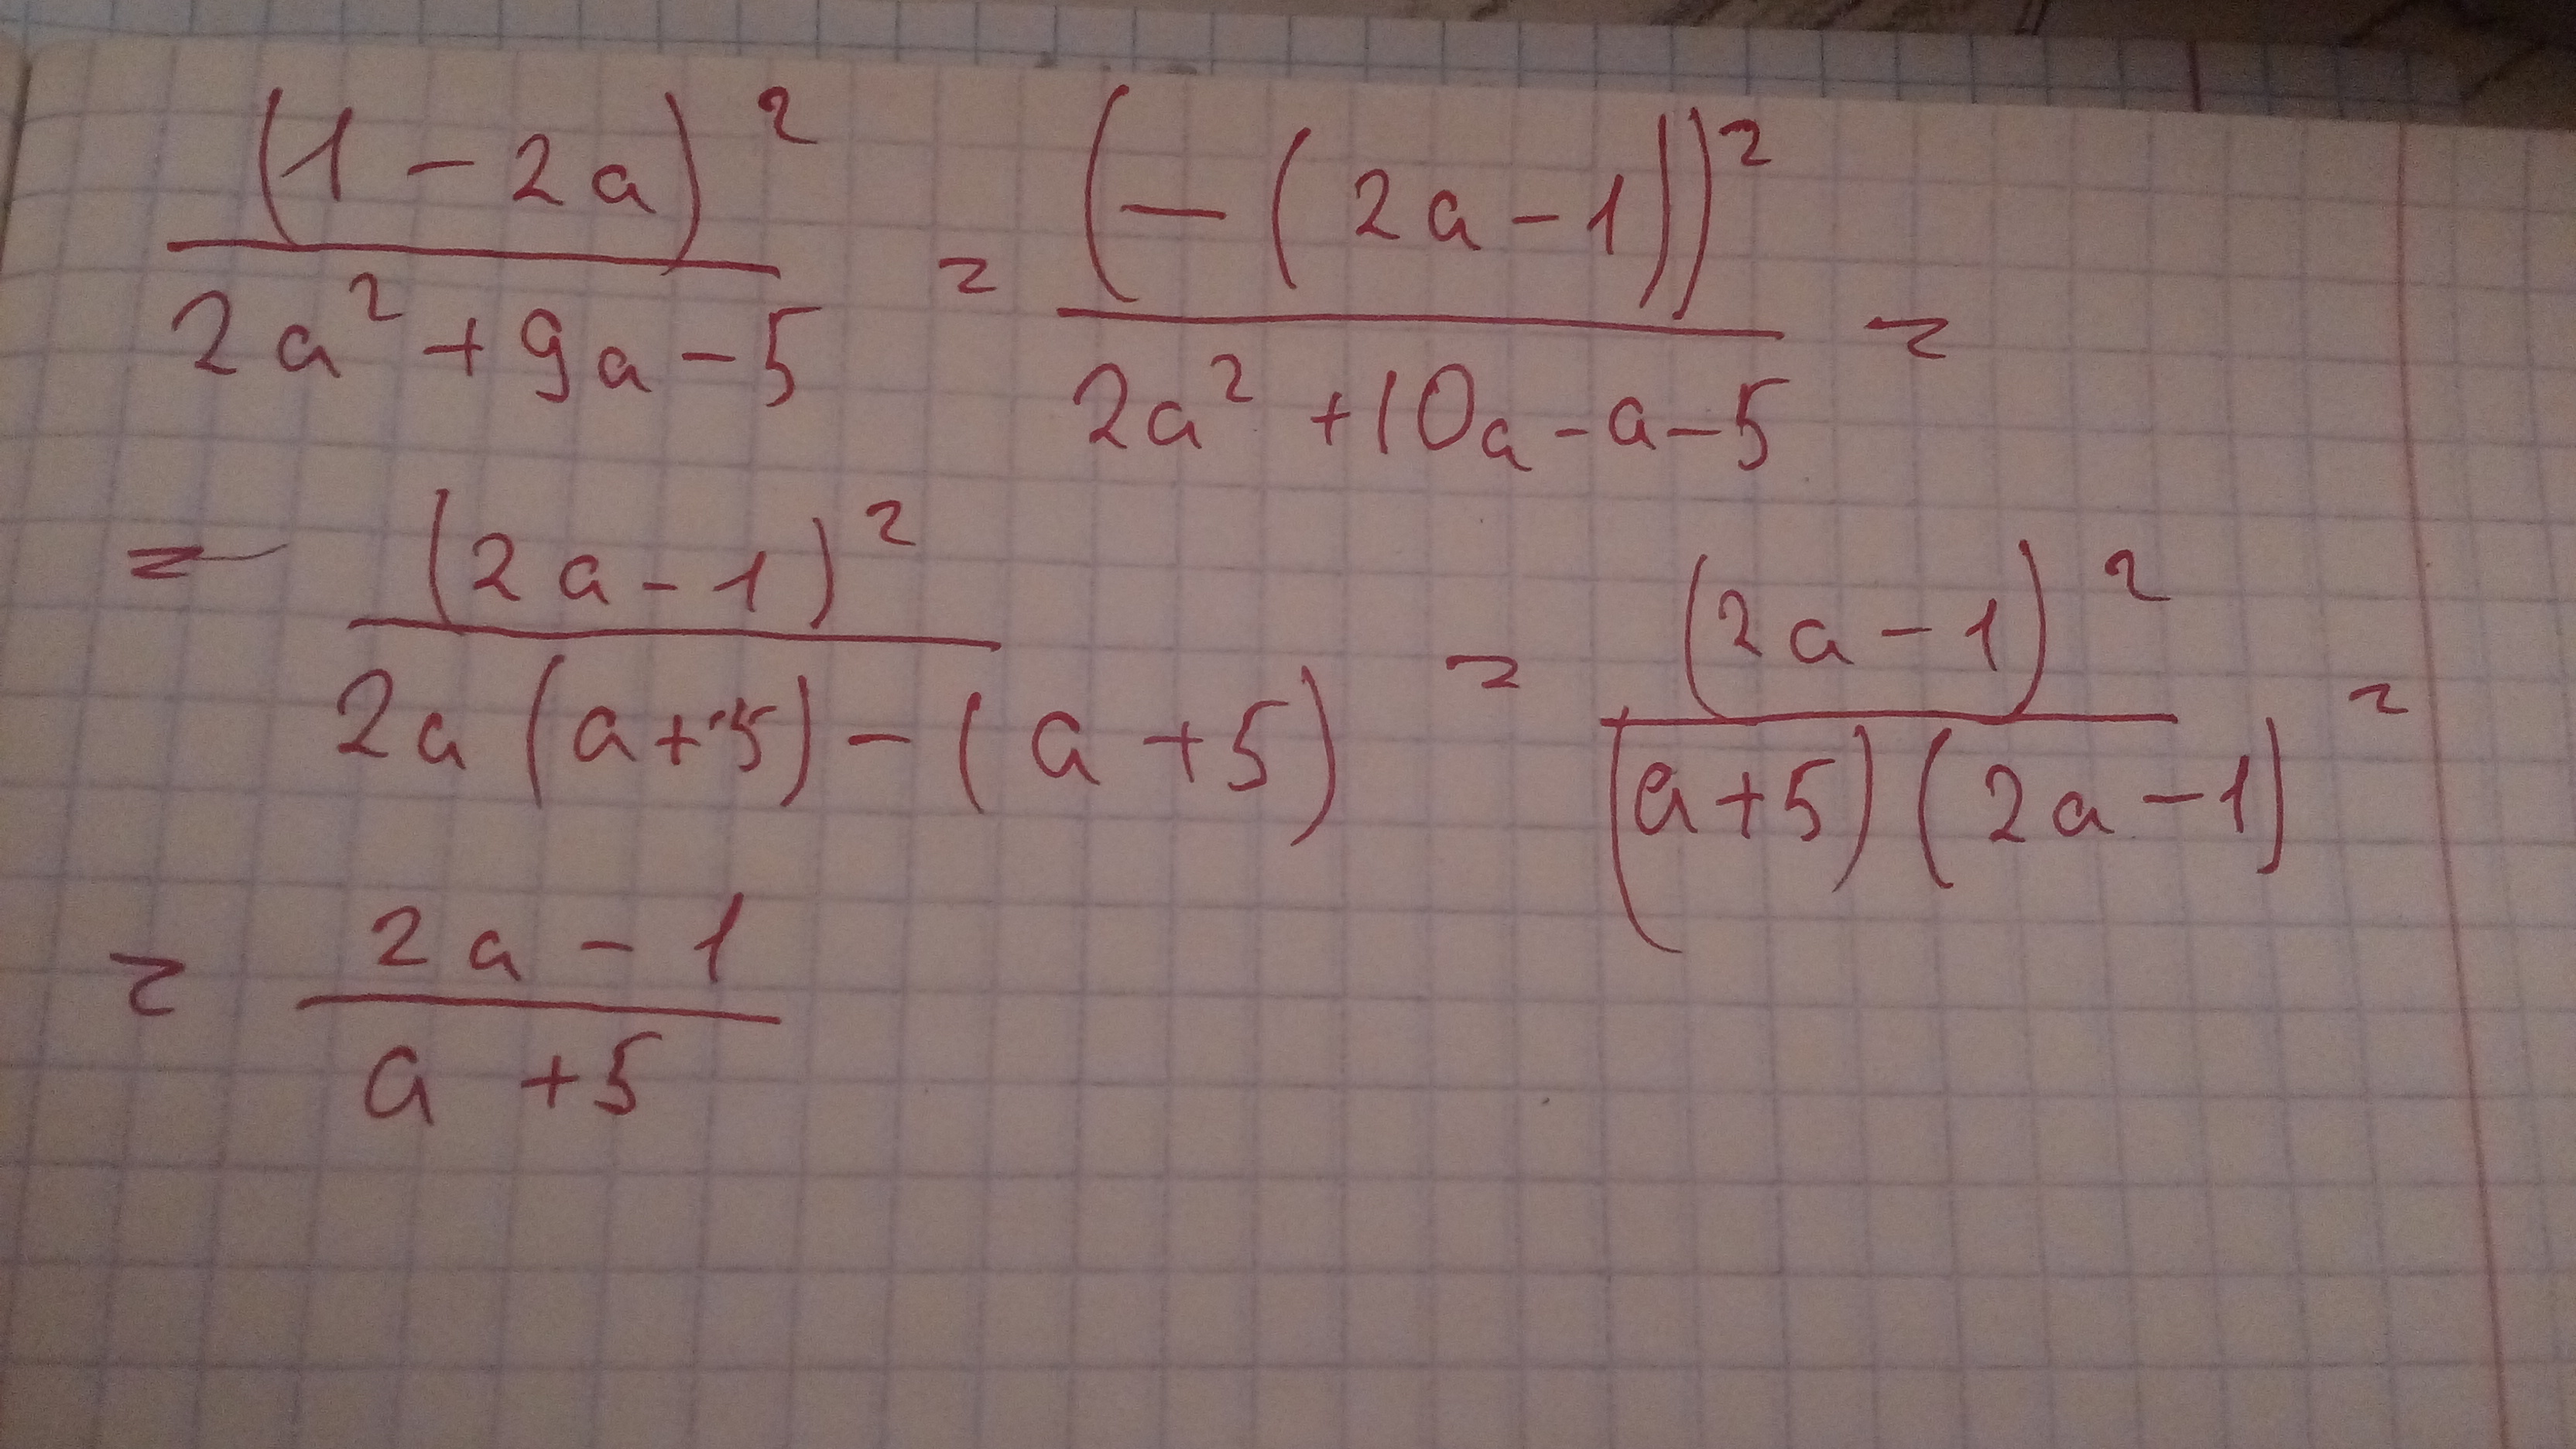 (1 - 2a)² / (2a² + 9a - 5) = (-(2a - 1))² / (2a² + 10a - a - 5) =
= (2a - 1)² / (2a(a + 5) - (a + 5)) = (2a - 1)² / ((a + 5)(2a - 1)) =
= (2a - 1) / (a + 5)